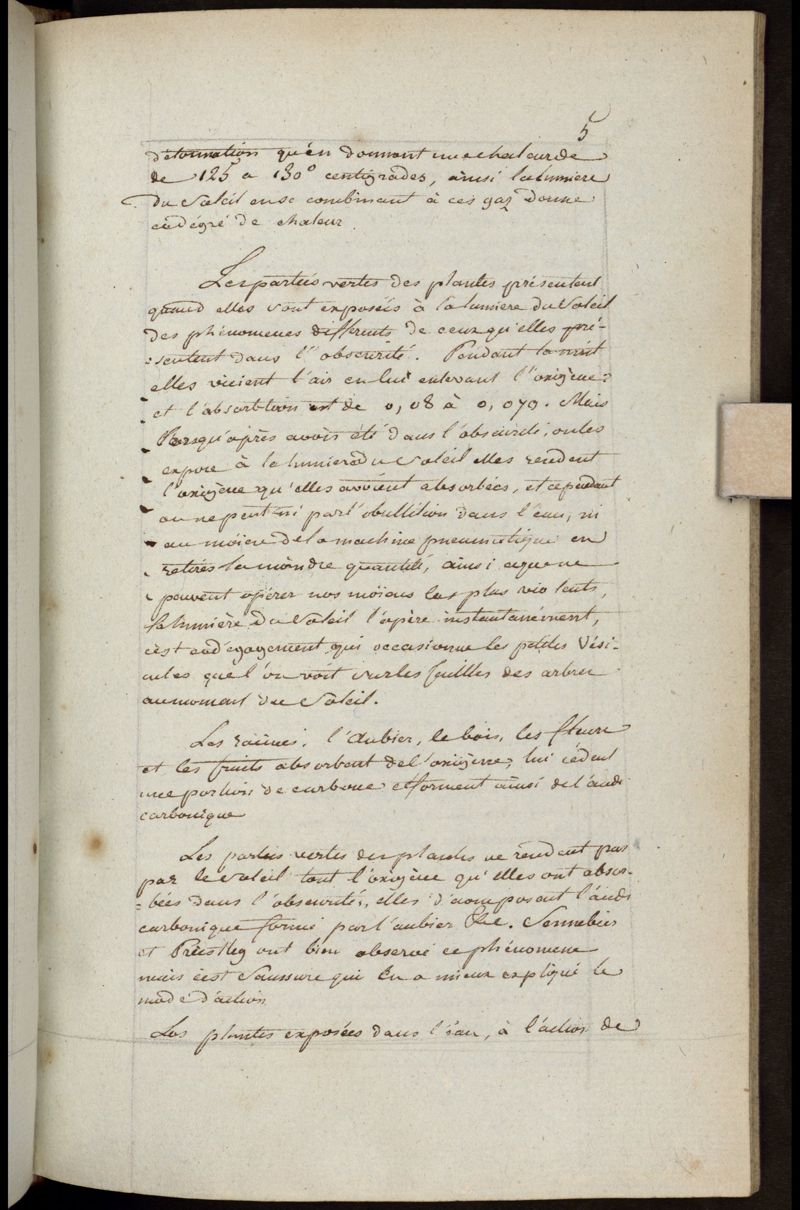 5
détonnation qu'en donnant une chaleur de
de 125 a 130° centigrades, ainsi la lumiere
du Soleil en se combinant à ces gaz donne
ce dégré de chaleur
Les parties vertes des plantes présentent
quand elles sont exposées à la lumiere du Soleil
des phénomenes différents de ceux qu'elles pré-
-sentent dans l'obscurité. Pendant la nuit
elles vicient l'air en lui enlevant l'oxigène,
et l'absorbtion est de 0,08 à 0,079. Mais
lorsqu'après avoir été dans l'obscurité, on les
expose à la lumiere du Soleil elles rendent
l'oxigène qu'elles avoient absorbées, et cependant
on ne peut ni par l'ébullition dans l'eau, ni
au moien de la machine pneumatique en
retirer la moindre quantité, ainsi ce que ne
peuvent opérer nos moïens les plus violents,
la lumière du Soleil l'opère instantanément,
c'est ce dégagement qui occasionne les petites vési-
cules que l'on voit sur les feuilles des arbres
au moment du Soleil.
Les racines, l'aubier, le bois, les fleurs
et les fruits absorbent de l'oxigène, lui cèdent
une portion de carbone et forment ainsi de l'acide
carbonique
Les parties vertes des plantes ne rendent pas
par le Soleil tout l'oxigène qu'elles ont absor-
-bées dans l'obscurité, elles décomposent l'acide
carbonique formé par l'aubier &c. Sennebier
et Priestley ont bien observé ce phénomene
mais c'est Saussure qui en a mieux expliqué le
mode d'action
Les plantes exposées dans l'eau, à l'action de